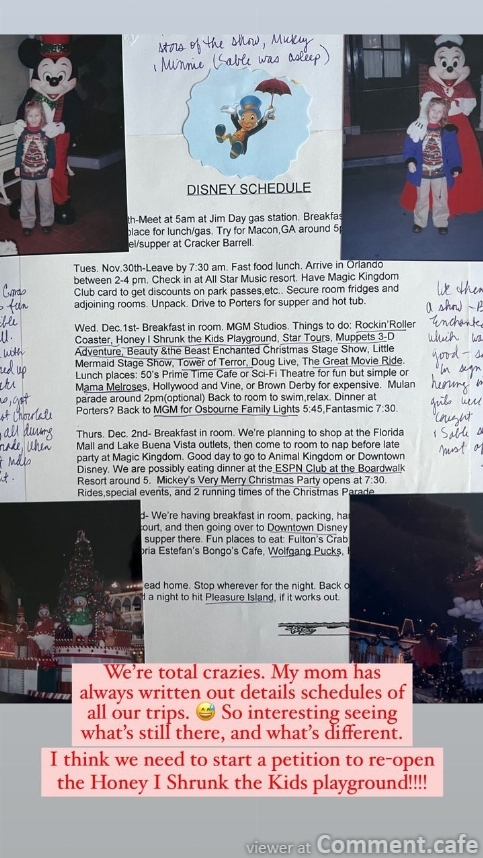 stars of the show, Mickey
, Minnie (Sable was asleep)
DISNEY SCHEDULE
th-Meet at 5am at Jim Day gas station. Breakfas
place for lunch/gas. Try for Macon,GA around 5p
el/supper at Cracker Barrell.
Tues. Nov.30th-Leave by 7:30 am. Fast food lunch. Arrive in Orlando
between 2-4 pm. Check in at All Star Music resort. Have Magic Kingdom
Club card to get discounts on park passes,etc.. Secure room fridges and
adjoining rooms. Unpack. Drive to Porters for supper and hot tub.
Wed. Dec.1st- Breakfast in room. MGM Studios. Things to do: Rockin'Roller
Coaster, Honey I Shrunk the Kids Playground, Star Tours, Muppets 3-D
Adventure, Beauty &the Beast Enchanted Christmas Stage Show, Little
Mermaid Stage Show, Tower of Terror, Doug Live, The Great Movie Ride.
Lunch places: 50's Prime Time Cafe or Sci-Fi Theatre for fun but simple or
Mama Melroses, Hollywood and Vine, or Brown Derby for expensive. Mulan
parade around 2pm(optional) Back to room to swim,relax. Dinner at
Porters? Back to MGM for Osbourne Family Lights 5:45,Fantasmic 7:30.
Thurs. Dec. 2nd- Breakfast in room. We're planning to shop at the Florida
Mall and Lake Buena Vista outlets, then come to room to nap before late
party at Magic Kingdom. Good day to go to Animal Kingdom or Downtown
Disney. We are possibly eating dinner at the ESPN Club at the Boardwalk
Resort around 5. Mickey's Very Merry Christmas Party opens at 7:30.
Rides,special events, and 2 running times of the Christmas Parade
d- We're having breakfast in room, packing, ha
ourt, and then going over to Downtown Disney
supper there. Fun places to eat: Fulton's Crab
ria Estefan's Bongo's Cafe, Wolfgang Pucks,
ead home. Stop wherever for the night. Back o
a night to hit Pleasure Island, if it works out.
We then
a show - B
Enchanted
which wa
good - s
hearing
girls were
caught
Sable
most of
with
ed up
got
st chocolate
all during
rade, when
We're total crazies. My mom has
always written out details schedules of
all our trips. 😅 So interesting seeing
what's still there, and what's different.
I think we need to start a petition to re-open
the Honey I Shrunk the Kids playground!!!!
viewer at Comment.cafe